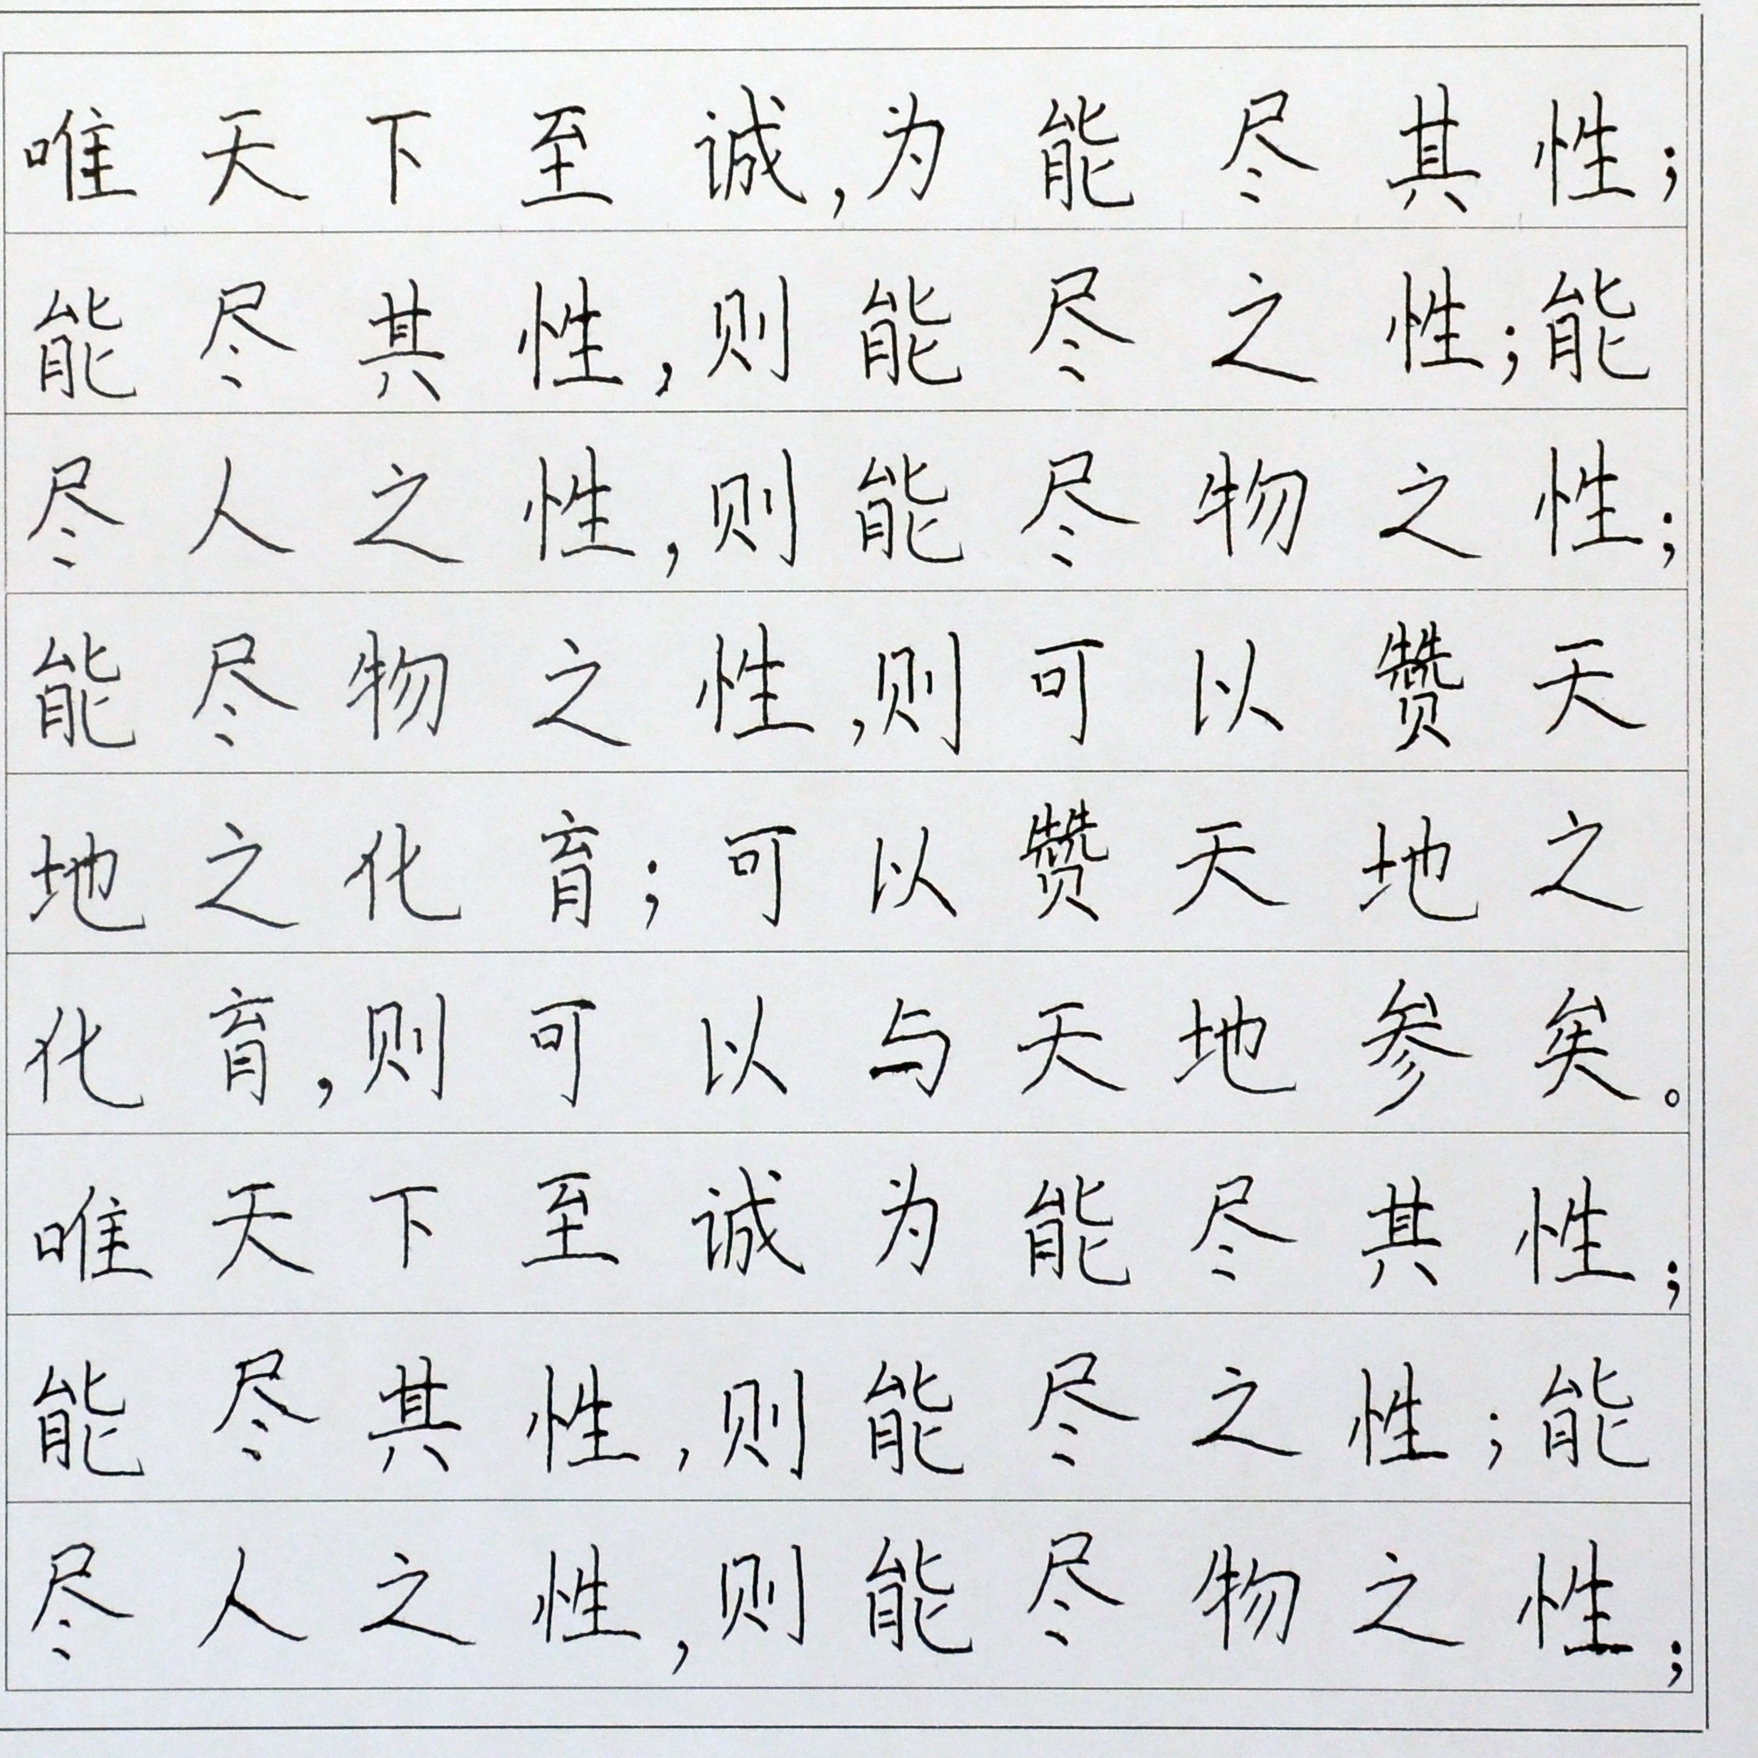 唯天下至诚,为能尽其性;
能尽其性,则能尽之性;能
尽人之性,则能尽物之性;
能尽物之性,则可以赞天
地之化育;可以赞天地之
化育,则可以与天地参矣。
唯天下至诚为能尽其性;
能尽其性,则能尽之性;能
尽人之性,则能尽物之性;